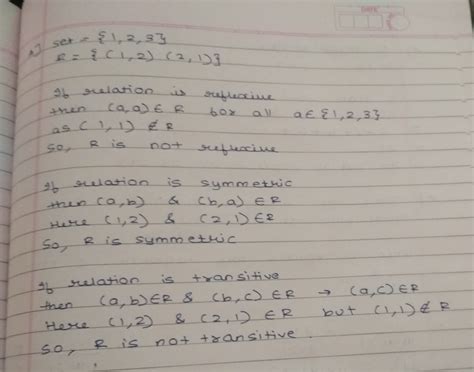 set = {1,2,3}
R = { (1,2) (2,1)}
If relation is reflexive
then (a,a) ∈ R for all a ∈ {1,2,3}
as (1,1) ∉ R
So, R is not reflexive
If relation is symmetric
then (a,b) & (b,a) ∈ R
Here (1,2) & (2,1) ∈ R
So, R is symmetric
If relation is transitive
then (a,b) ∈ R & (b,c) ∈ R → (a,c) ∈ R
Here (1,2) & (2,1) ∈ R but (1,1) ∉ R
So, R is not transitive.